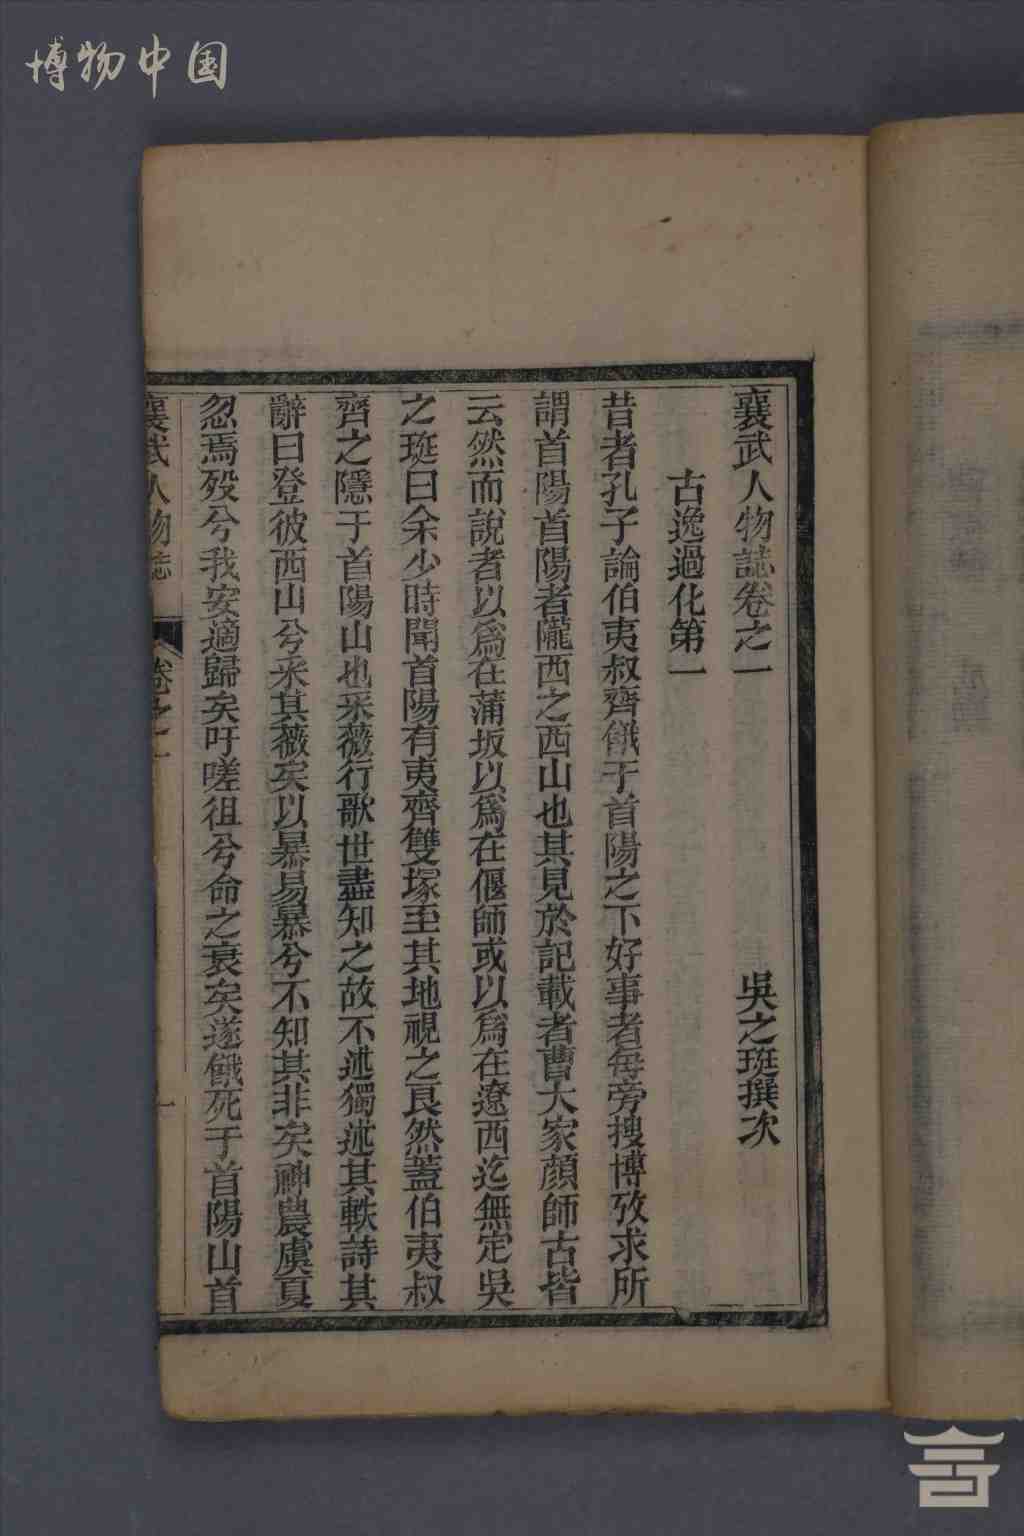 博物中国
襄武人物誌卷之一
吳之珽撰次
古逸過化第一
昔者孔子論伯夷叔齊餓于首陽之下好事者每旁搜博攷求所
謂首陽首陽者隴西之西山也其見於記載者曹大家顏師古皆
云然而說者以爲在蒲坂以爲在偃師或以爲在遼西迄無定吳
之珽曰余少時聞首陽有夷齊雙塚至其地視之良然蓋伯夷叔
齊之隱于首陽山也采薇行歌世盡知之故不述獨述其軼詩其
辭曰登彼西山兮采其薇矣以暴易暴兮不知其非矣神農虞夏
忽焉歿兮我安適歸矣吁嗟徂兮命之衰矣遂餓死于首陽山首
襄武人物誌
卷之一
一